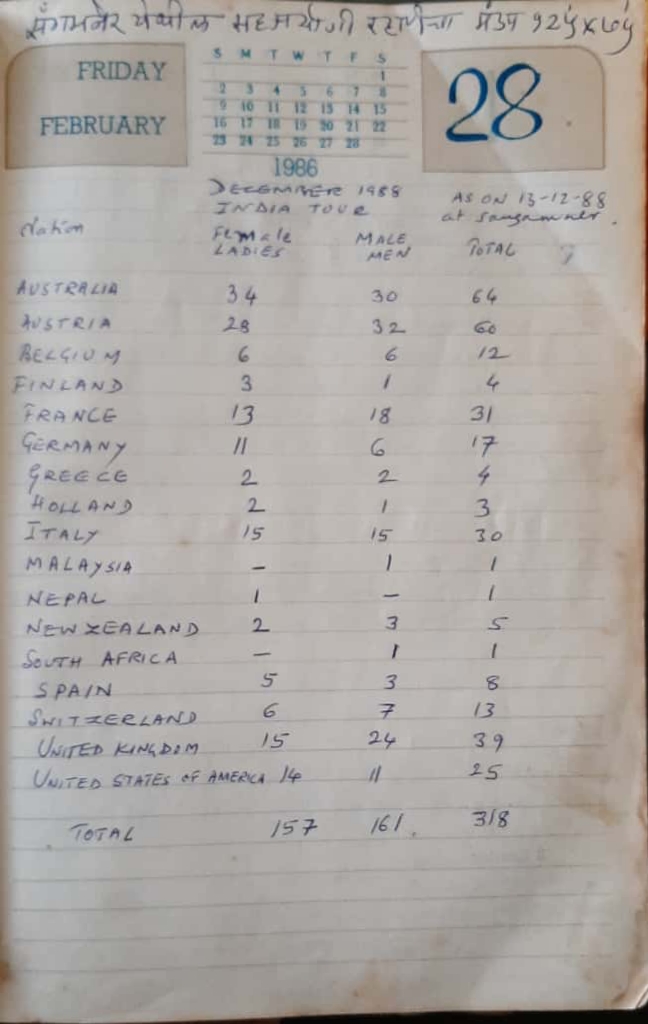 संगमनेर येथील सहजयोगी स्टाफीचा मंडप १२५ x ७५
FRIDAY
FEBRUARY
S M T W T F S
1
2 3 4 5 6 7 8
9 10 11 12 13 14 15
16 17 18 19 20 21 22
23 24 25 26 27 28
1986
28
DECEMBER 1988 AS ON 13-12-88
INDIA TOUR at Sangamner.
Nation Female MALE TOTAL
LADIES MEN
AUSTRALIA 34 30 64
AUSTRIA 28 32 60
BELGIUM 6 6 12
FINLAND 3 1 4
FRANCE 13 18 31
GERMANY 11 6 17
GREECE 2 2 4
HOLLAND 2 1 3
ITALY 15 15 30
MALAYSIA - 1 1
NEPAL 1 - 1
NEW ZEALAND 2 3 5
SOUTH AFRICA - 1 1
SPAIN 5 3 8
SWITZERLAND 6 7 13
UNITED KINGDOM 15 24 39
UNITED STATES OF AMERICA 14 11 25
TOTAL 157 161. 318